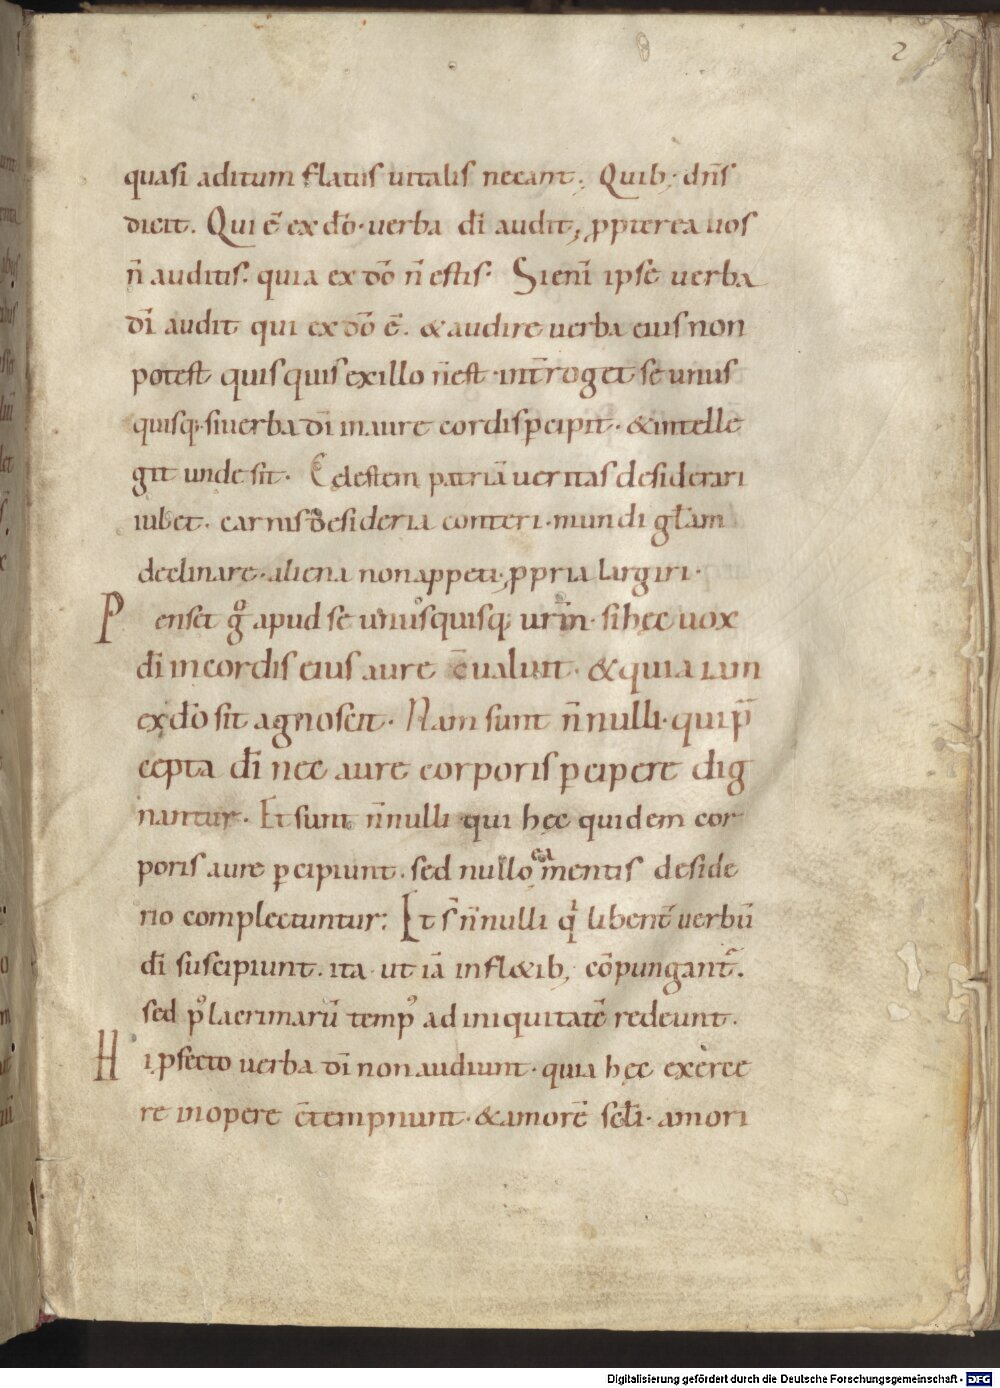 2
quasi aditum flatus uitalis necant; Quib; dn̄s
dicit. Qui ē ex dō uerba dī audit; ꝓpterea uos
n̄ auditis. quia ex dō n̄ estis. Si enī ipse uerba
dī audit qui ex dō ē. & audire uerba eius non
potest quisquis ex illo n̄ est. int̄roget se unus
quisq; si uerba dī in aure cordis ꝑcipit. & intelle
git unde sit. Cęlestem patriā ueritas desiderari
iubet. carnis desideria conteri. mundi gl̄am
declinare. aliena non appeti. ꝓpria largiri.
Penset gͦ apud se unusquisq; ur̄m. si hęc uox
dī in cordis eius aure c̄ualuit. & quia iam
ex dō sit agnoscit. Nam sunt n̄nulli. qui p̄
cepta dī nec aure corporis ꝑcipere dig
nantur. Et sunt n̄nulli qui hęc quidem cor
poris aure ꝑcipiunt. sed nullo ea mentis deside
rio complectuntur; Et s̄ n̄nulli qͥ libent̄ uerbū
dī suscipiunt. ita ut iā in fl&ib; cōpungant̄.
sed p᾿ lacrimarū temp᾿ ad iniquitatē redeunt.
Hi ꝓfecto uerba dī non audiunt. quia hęc exerce
re in opere c̄tempnunt. & amorē sc̄li. amori
Digitalisierung gefördert durch die Deutsche Forschungsgemeinschaft - DFG